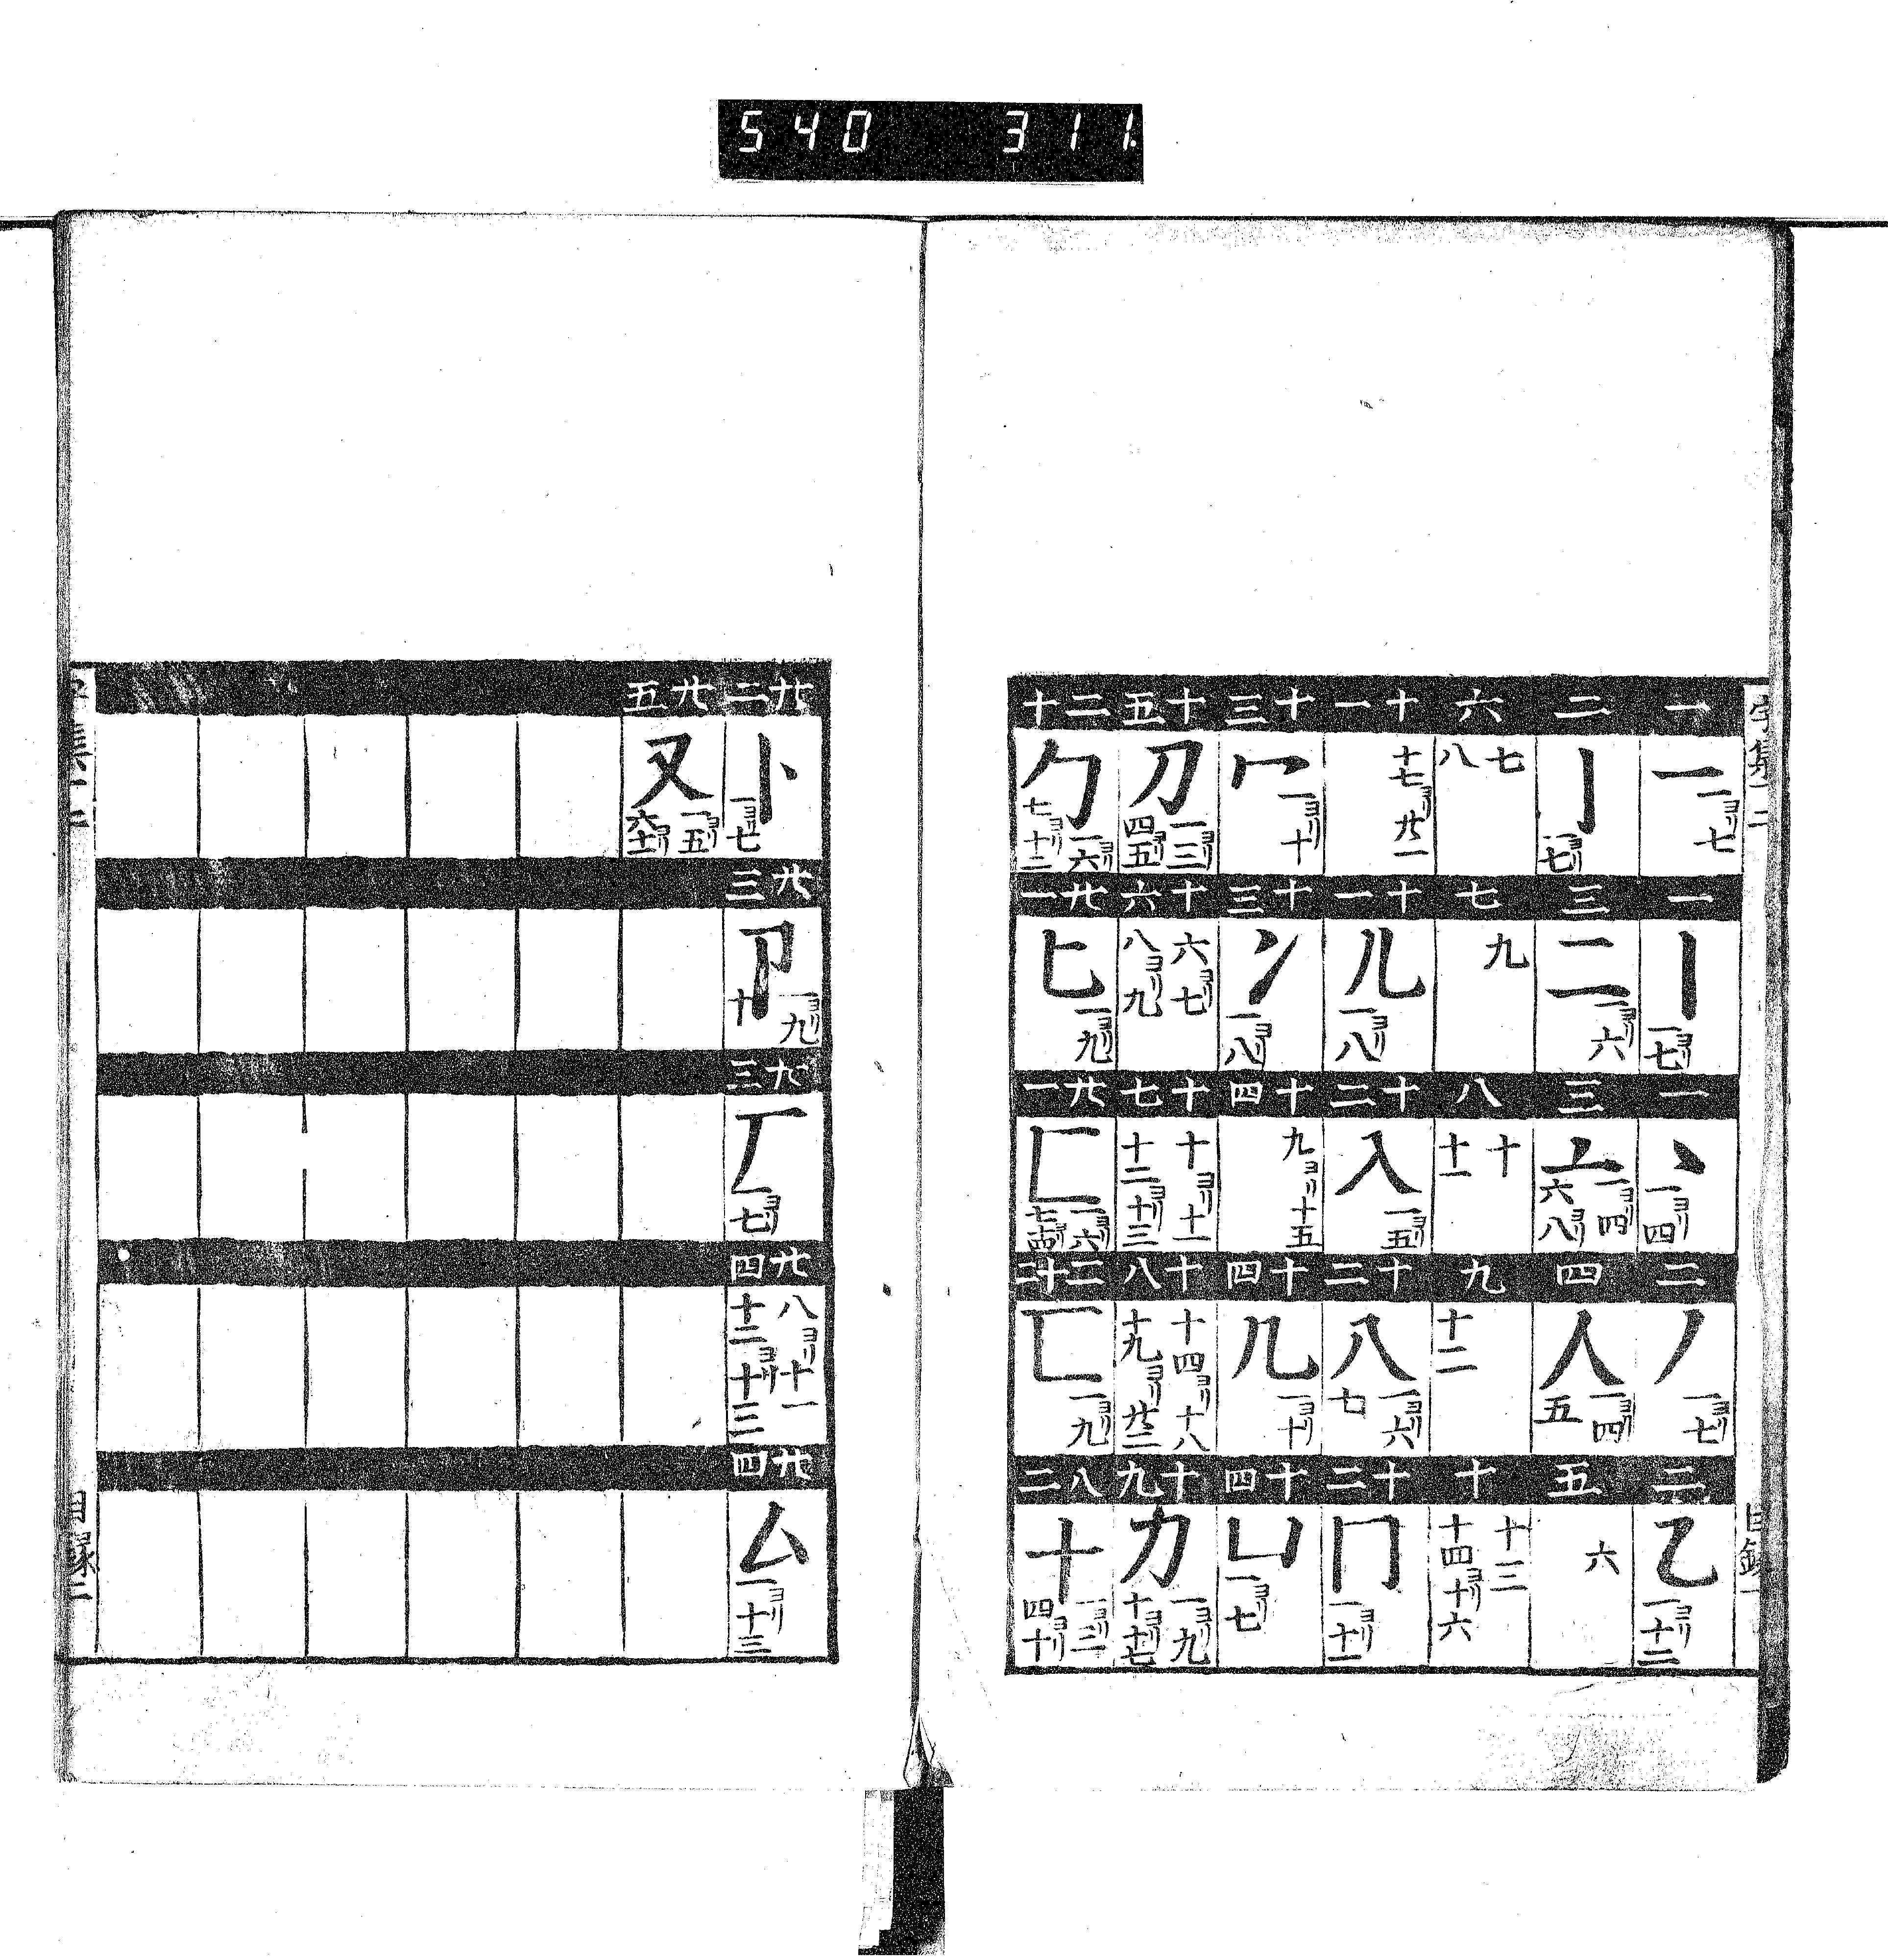 540 311
字集 一二
目録 一
一
一 二ヨリ七
一
丨 一ヨリ七
一
丶 一ヨリ四
二
丿 一ヨリ七
三
乙 一ヨリ十二
二
亅 一ヨリ七
三
二 一ヨリ六
三
亠 一ヨリ四 六ヨリ八
四
人 一ヨリ四 五
五
六
六
七 八
七
九
八
十 十一
九
十二
十
十三 十四ヨリ十六
十一
十七ヨリ廿一
十一
儿 一ヨリ八
十二
入 一ヨリ五
十二
八 一ヨリ六 七
十二
冂 一ヨリ十一
十三
冖 一ヨリ十
十三
冫 一ヨリ八
十四
九ヨリ十五
十四
几 一ヨリ十
十四
凵 一ヨリ七
十五
刀 一ヨリ三 四ヨリ五
十六
六ヨリ七 八ヨリ九
十七
十ヨリ十一 十二ヨリ十三
十八
十四ヨリ十八 十九ヨリ廿二
十九
力 一ヨリ九 十ヨリ十七
二十
勹 一ヨリ六 七ヨリ十二
廿一
匕 一ヨリ九
廿一
匚 一ヨリ六 七ヨリ
二十二
匸 一ヨリ九
十 一ヨリ三 四ヨリ十
廿二
卜 一ヨリ七
廿三
卩 一ヨリ九 十
廿三
厂 一ヨリ七
廿四
八ヨリ十一 十二ヨリ十三
廿四
厶 一ヨリ十三
廿五
又 一ヨリ五
字集 一二
目録 二